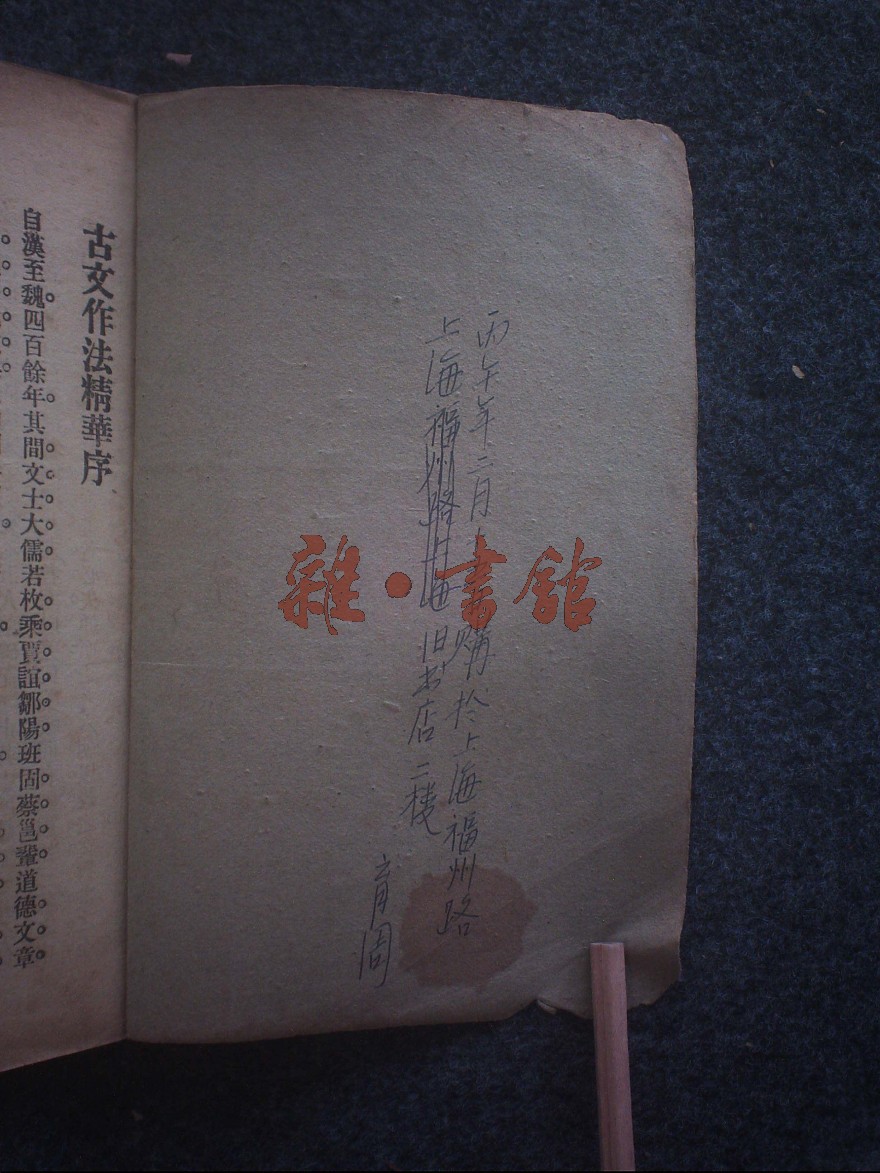 丙午年二月購於上海福州路
上海福州路上海旧书店二楼
育周
雜·書館
古文作法精華序
自漢至魏四百餘年其間文士大儒若枚乘賈誼鄒陽班固蔡邕輩道德文章